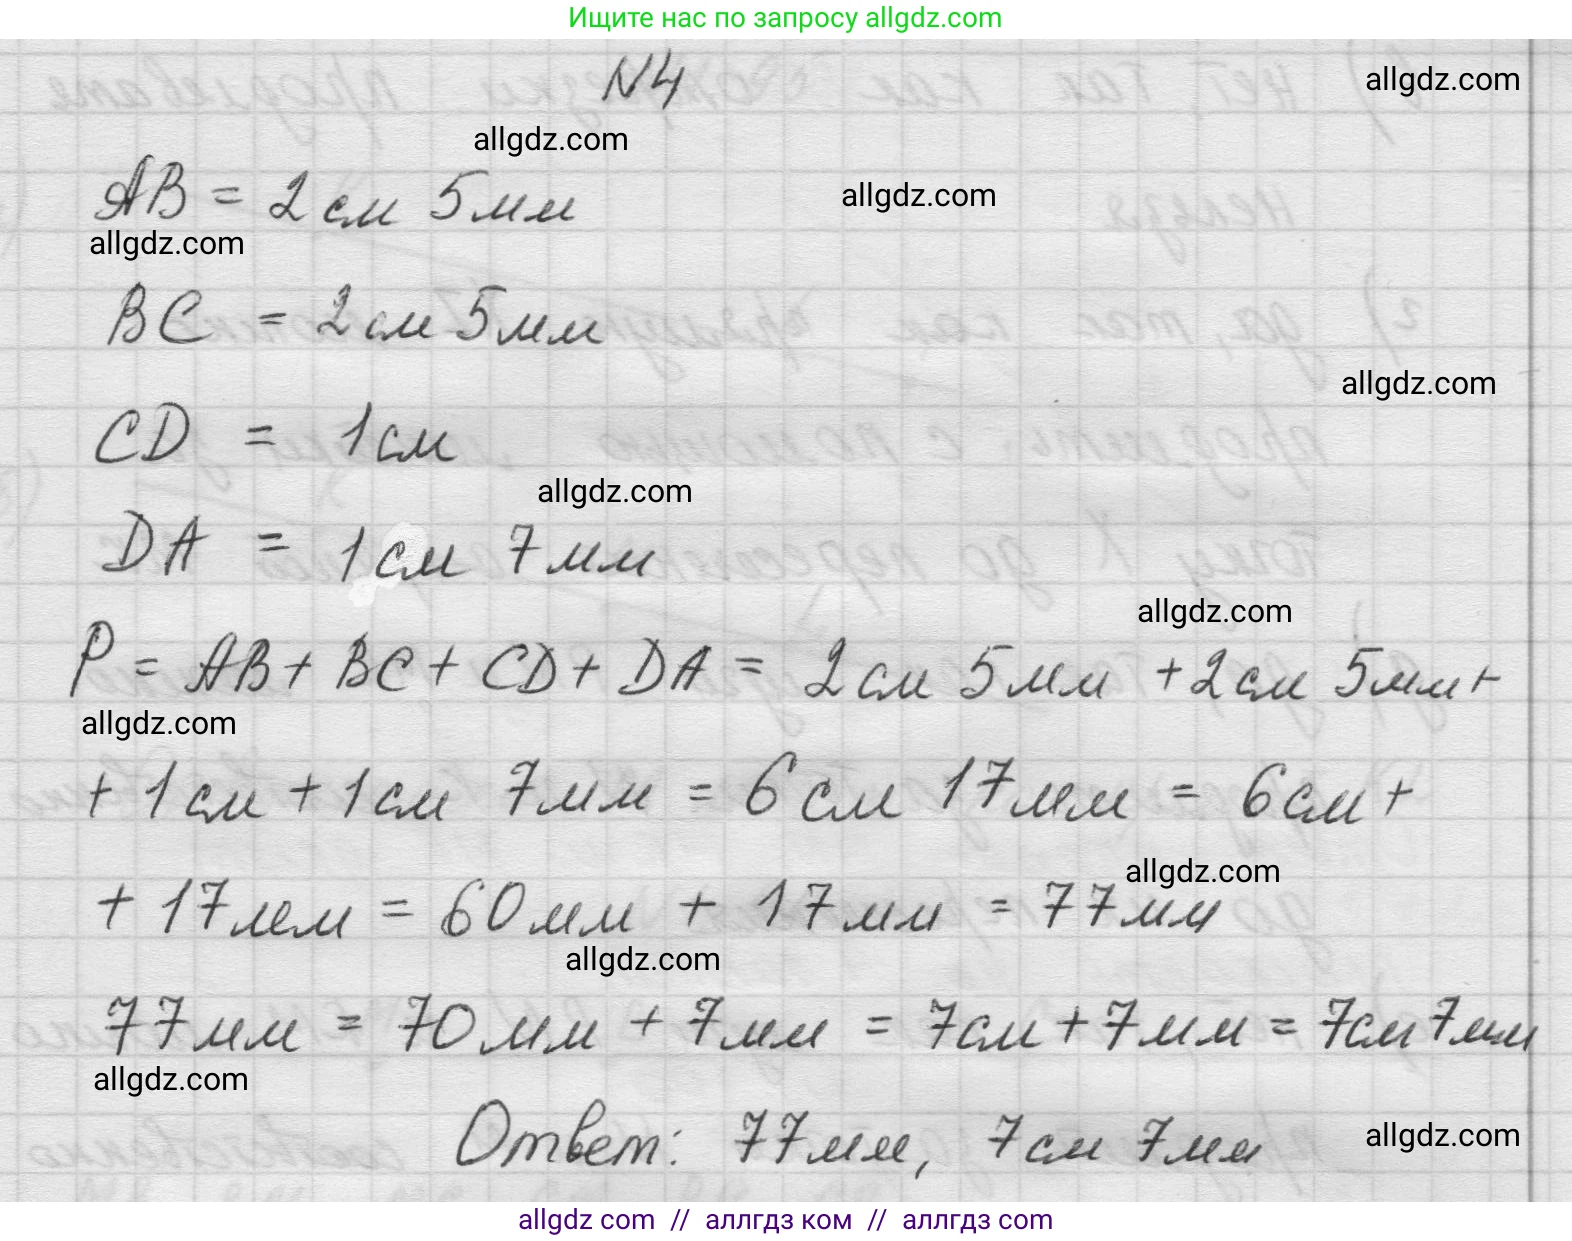 Ищите нас по запросу allgdz.com
N4
allgdz.com
allgdz.com
AB = 2 см 5 мм
allgdz.com
allgdz.com
BC = 2 см 5 мм
allgdz.com
CD = 1 см
allgdz.com
DA = 1 см 7 мм
allgdz.com
P = AB + BC + CD + DA = 2 см 5 мм + 2 см 5 мм +
allgdz.com
+ 1 см + 1 см 7 мм = 6 см 17 мм = 6 см +
allgdz.com
+ 17 мм = 60 мм + 17 мм = 77 мм
allgdz.com
77 мм = 70 мм + 7 мм = 7 см + 7 мм = 7 см 7 мм
allgdz.com
Ответ: 77 мм, 7 см 7 мм
allgdz.com
allgdz com // аллгдз ком // аллгдз com